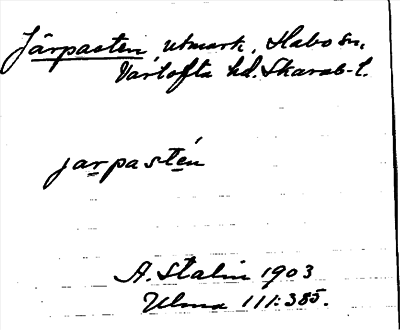 Järpasten utmark, Habo sn,
Vartofta hd. Skarab-l.
jarpastén
A. Stalin 1903
Ulma 111:385.